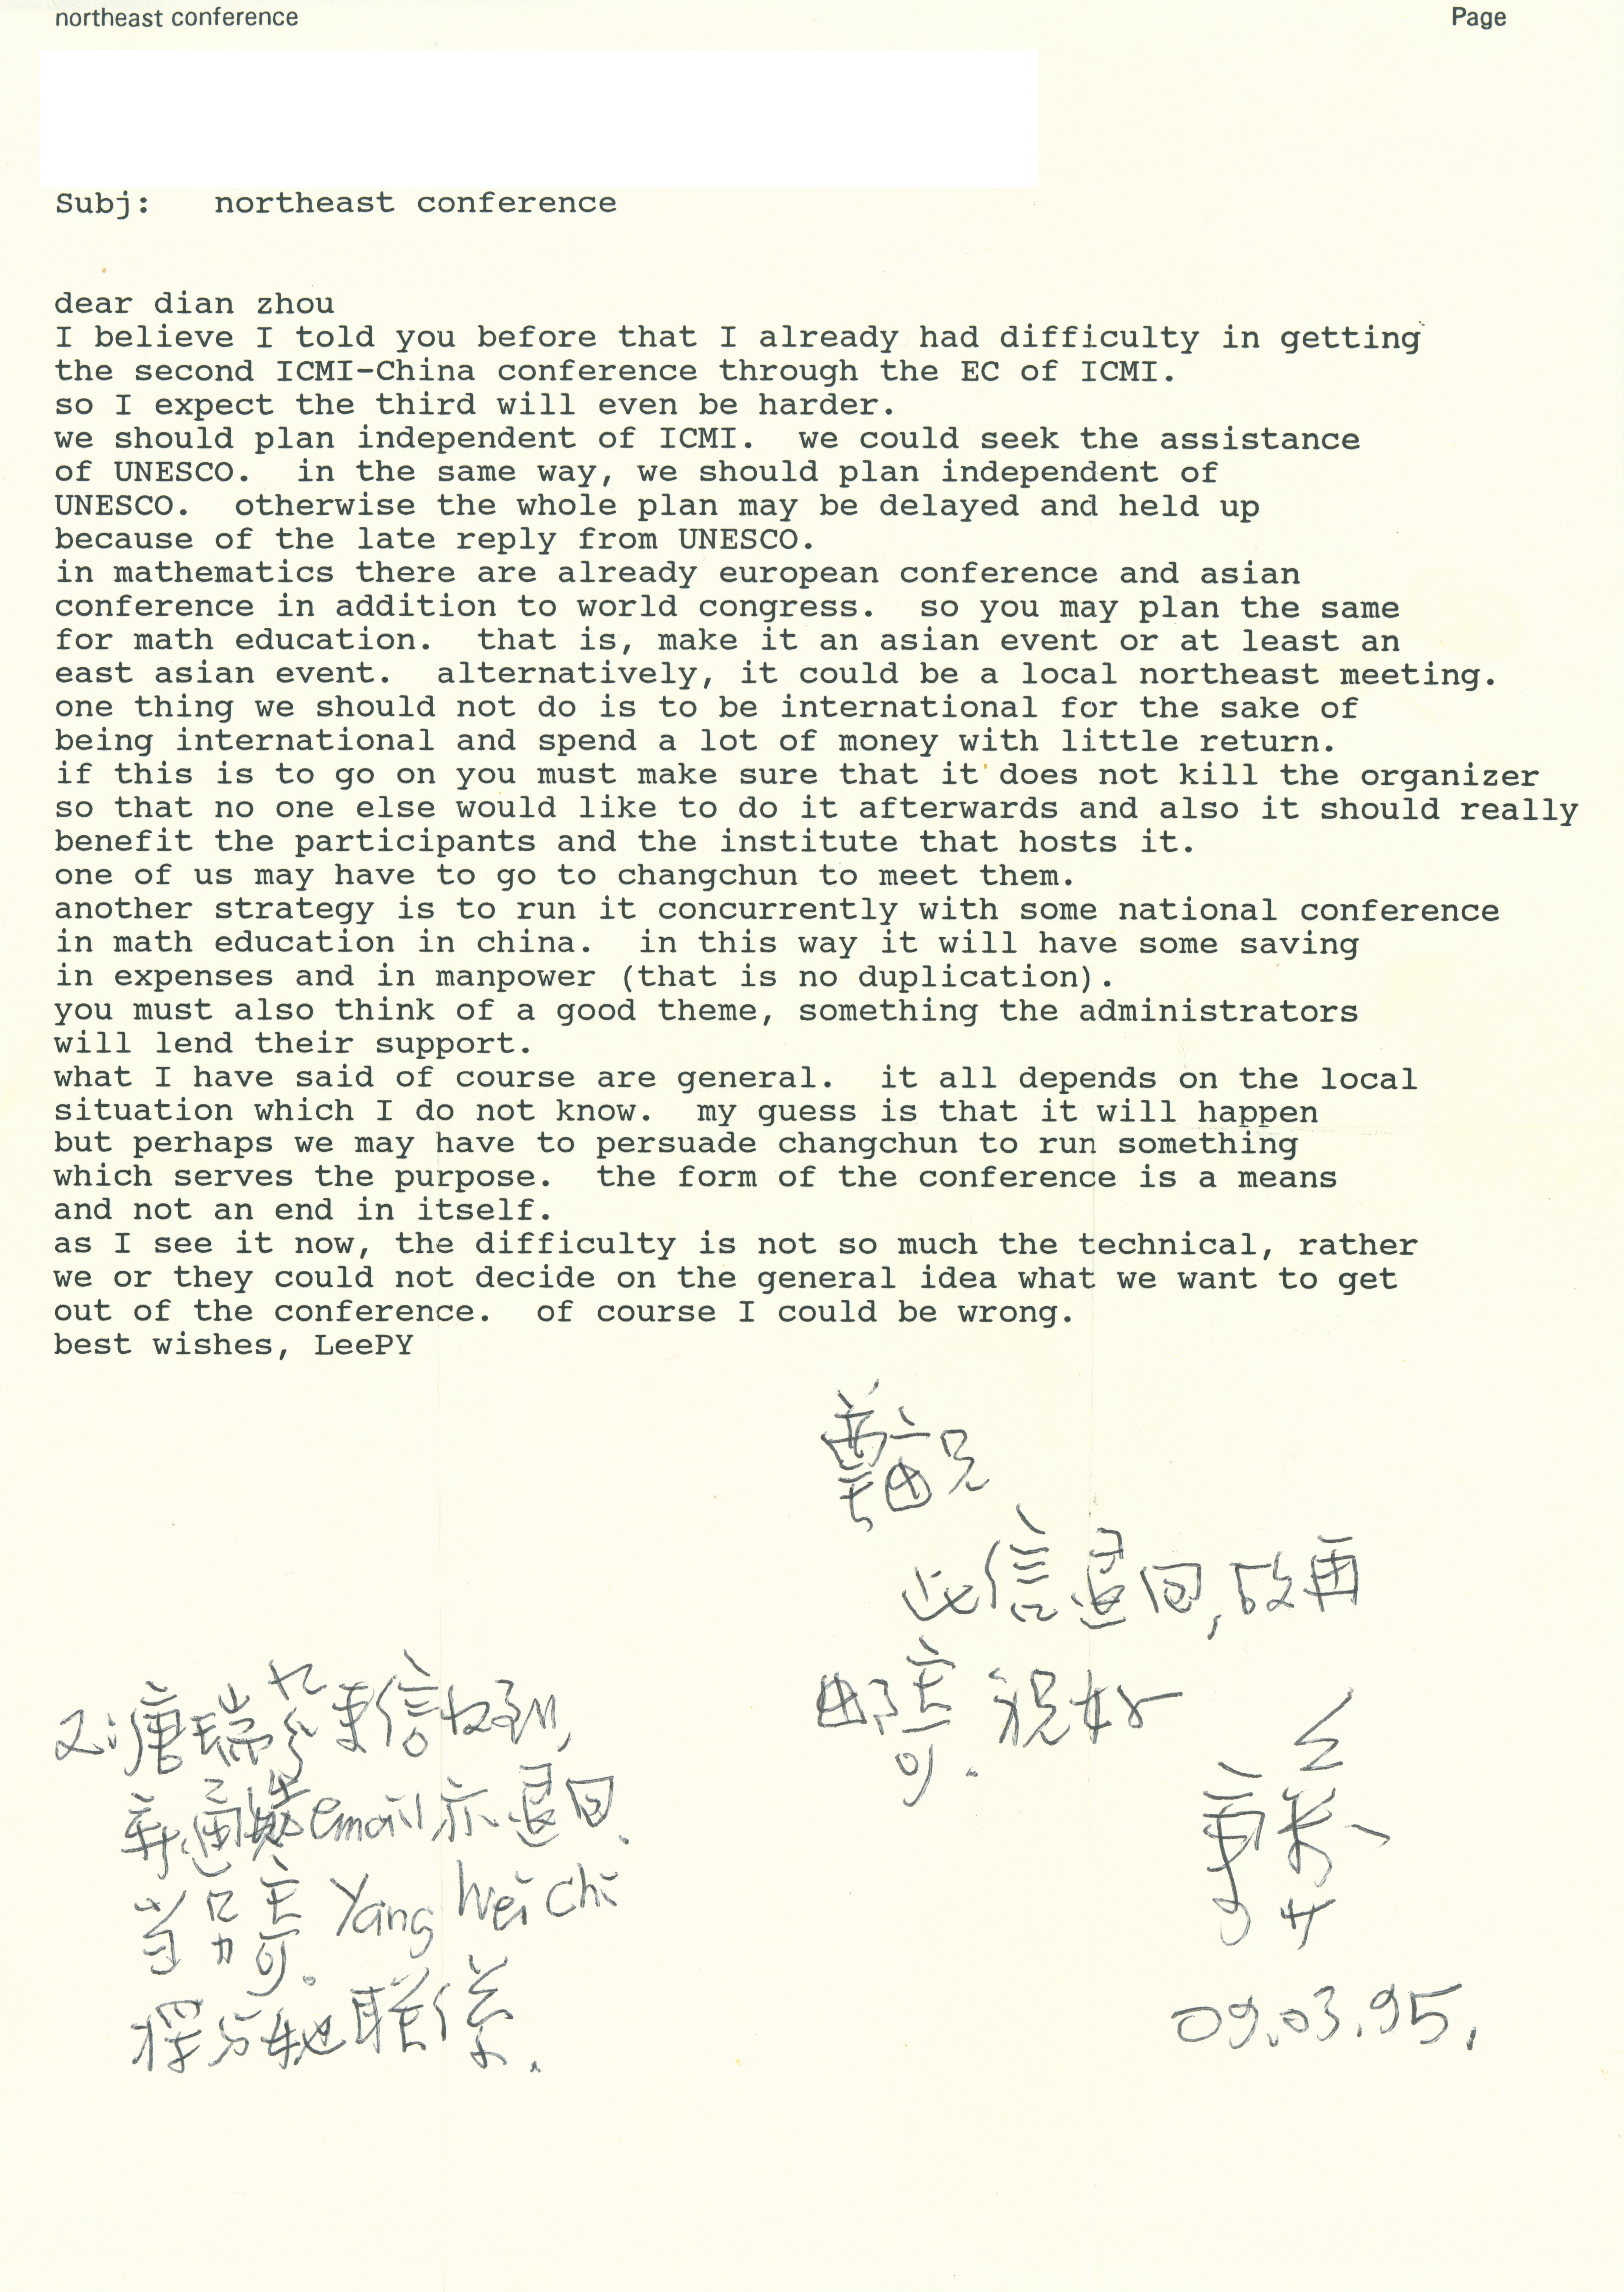 northeast conference Page
Subj: northeast conference
dear dian zhou
I believe I told you before that I already had difficulty in getting
the second ICMI-China conference through the EC of ICMI.
so I expect the third will even be harder.
we should plan independent of ICMI. we could seek the assistance
of UNESCO. in the same way, we should plan independent of
UNESCO. otherwise the whole plan may be delayed and held up
because of the late reply from UNESCO.
in mathematics there are already european conference and asian
conference in addition to world congress. so you may plan the same
for math education. that is, make it an asian event or at least an
east asian event. alternatively, it could be a local northeast meeting.
one thing we should not do is to be international for the sake of
being international and spend a lot of money with little return.
if this is to go on you must make sure that it does not kill the organizer
so that no one else would like to do it afterwards and also it should really
benefit the participants and the institute that hosts it.
one of us may have to go to changchun to meet them.
another strategy is to run it concurrently with some national conference
in math education in china. in this way it will have some saving
in expenses and in manpower (that is no duplication).
you must also think of a good theme, something the administrators
will lend their support.
what I have said of course are general. it all depends on the local
situation which I do not know. my guess is that it will happen
but perhaps we may have to persuade changchun to run something
which serves the purpose. the form of the conference is a means
and not an end in itself.
as I see it now, the difficulty is not so much the technical, rather
we or they could not decide on the general idea what we want to get
out of the conference. of course I could be wrong.
best wishes, LeePY
奠宙兄
此信退回,故再
邮寄. 祝好
秉彝
09.03.95.
又:唐瑞芬来信收到,
email亦退回.
当另寄. Yang Wei Chi
将与她联係.